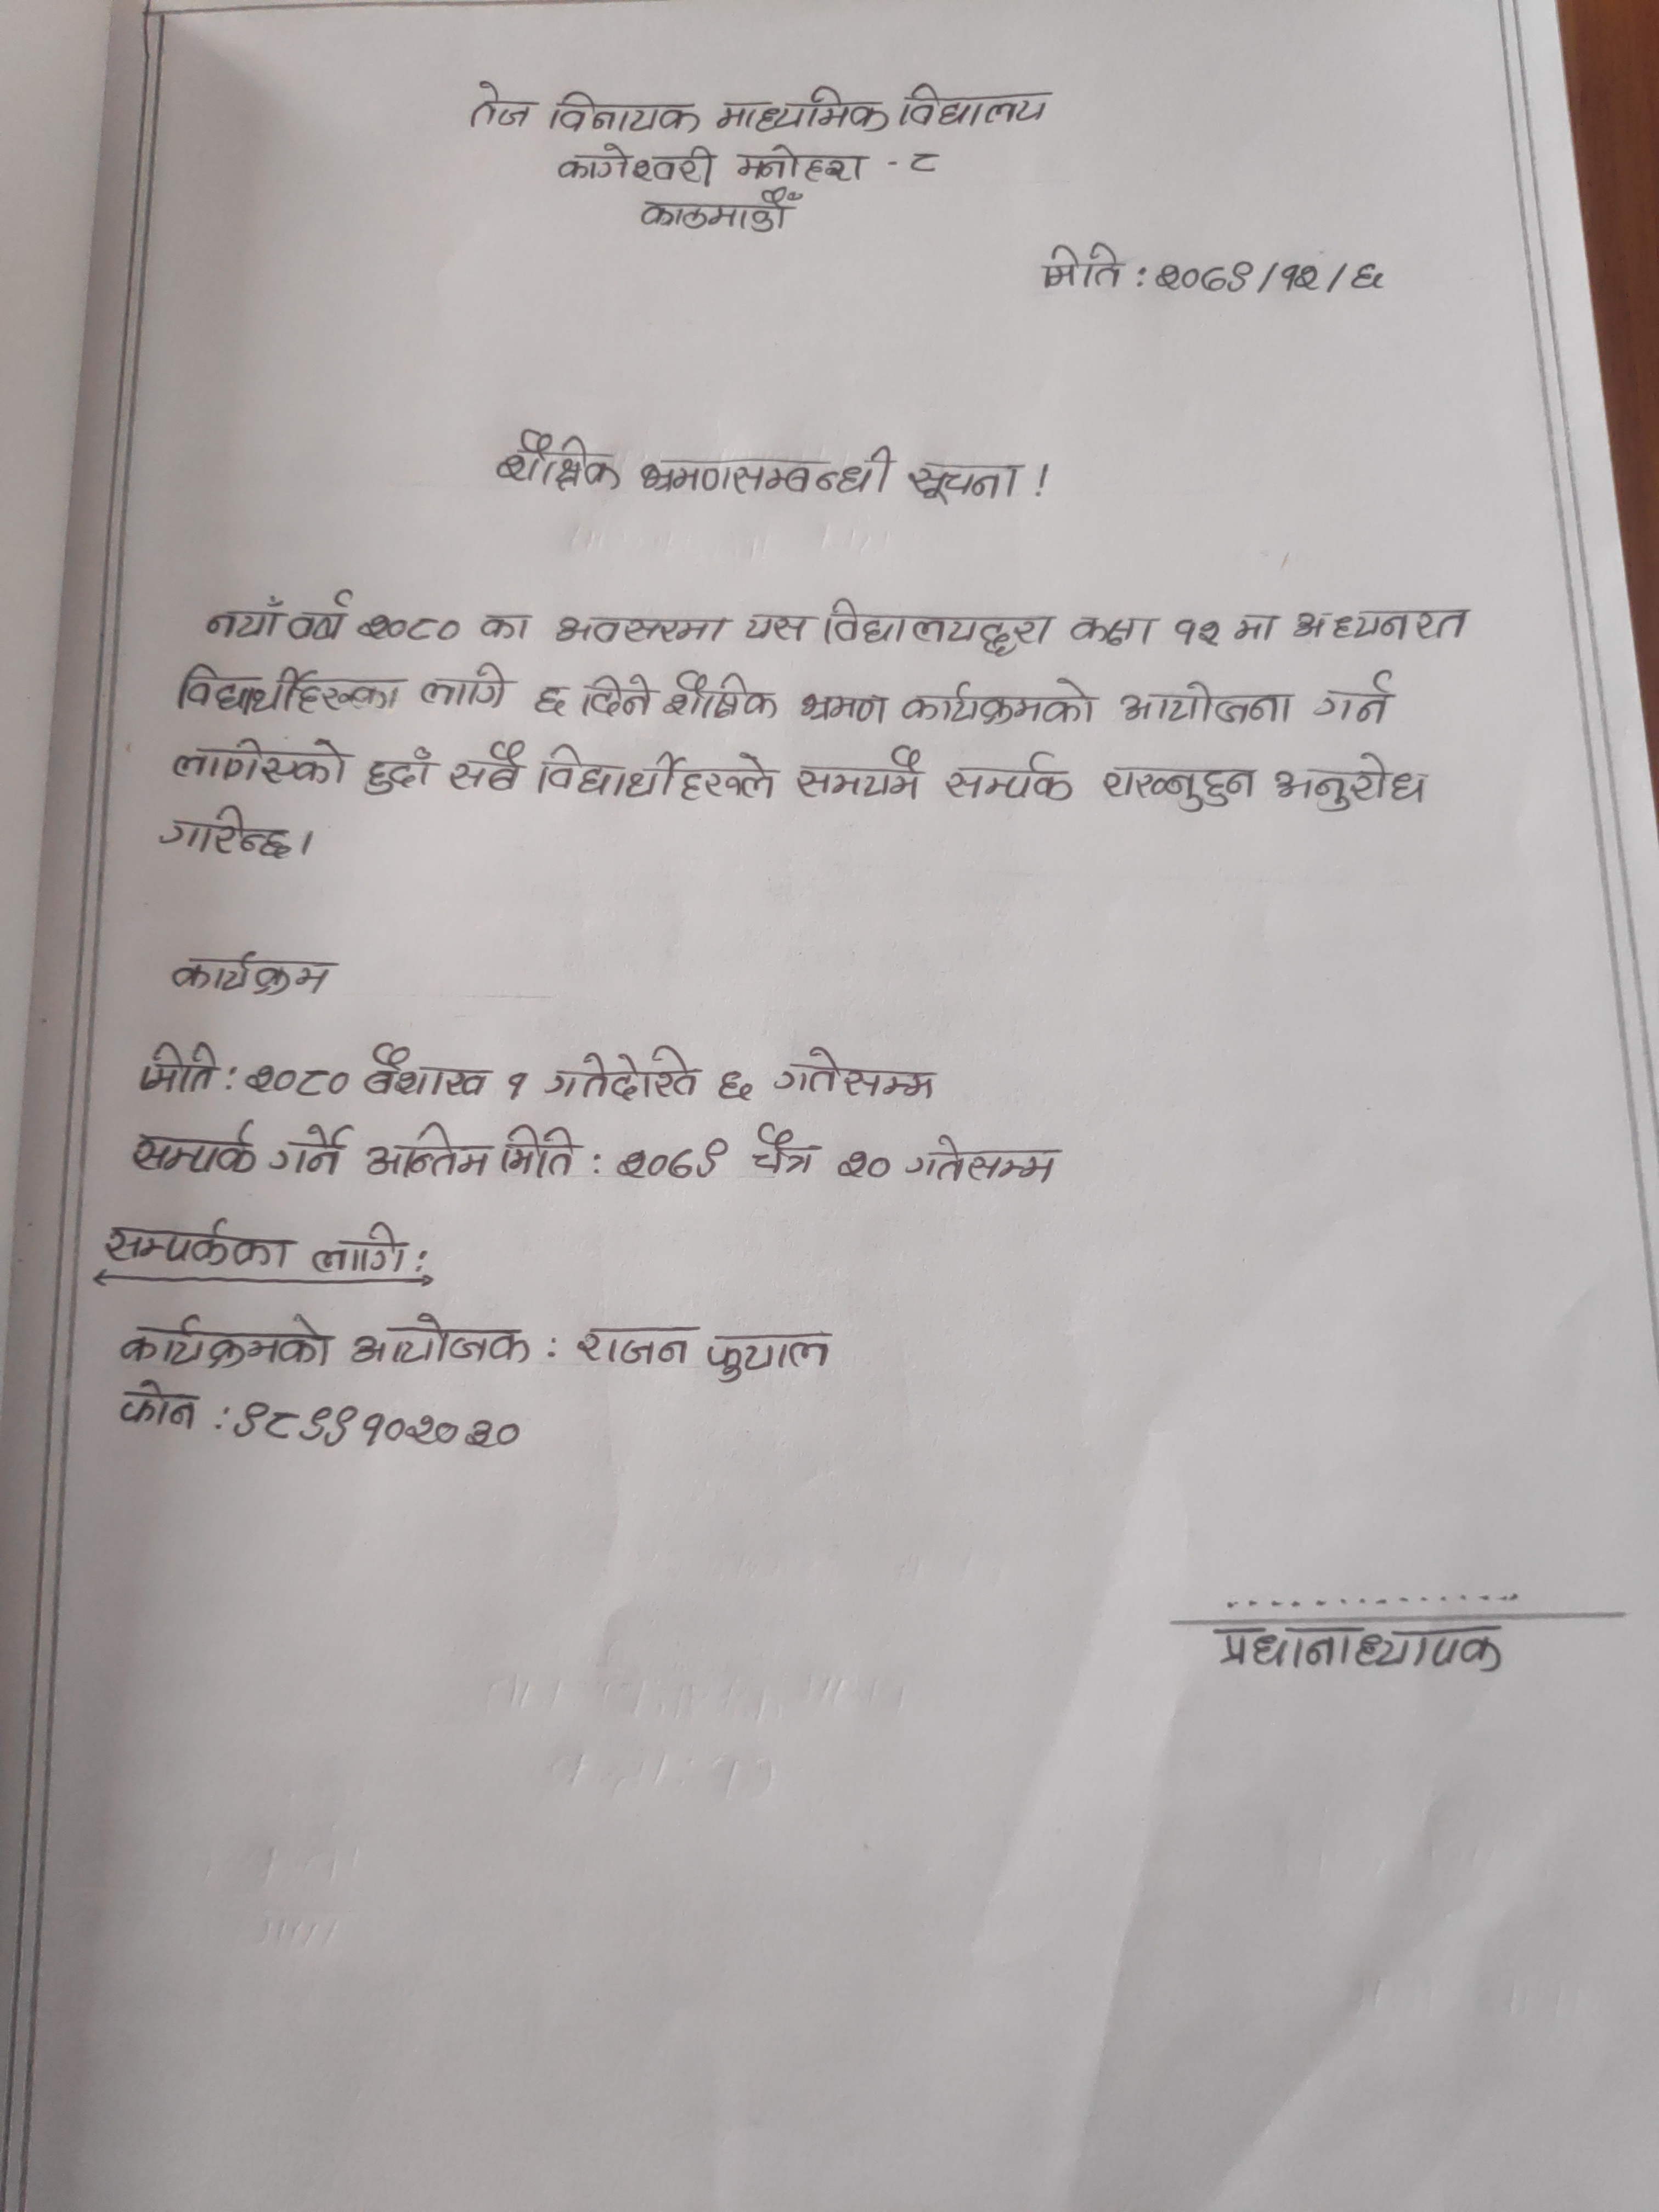 तेज विनायक माध्यमिक विद्यालय
कागेश्वरी मनोहरा - ८
काठमाडौँ
मिति : २०७९/१२/६
शैक्षिक भ्रमणसम्बन्धी सूचना !
नयाँ वर्ष २०८० का अवसरमा यस विद्यालयद्वारा कक्षा १२ मा अध्यनरत
विद्यार्थीहरूका लागि ६ दिने शैक्षिक भ्रमण कार्यक्रमको आयोजना गर्न
लागिएको हुदाँ सबै विद्यार्थीहरूले समयमै सर्म्पक राख्नुहुन अनुरोध
गरिन्छ।
कार्यक्रम
मिति : २०८० बैशाख १ गतेदेखि ६ गतेसम्म
सम्पर्क गर्ने अन्तिम मिति : २०७९ चैत्र २० गतेसम्म
सम्पर्कका लागि :
कार्यक्रमको आयोजक : राजन फुयाल
फोन : ९८९९१०२०३०
..............
प्रधानाध्यापक